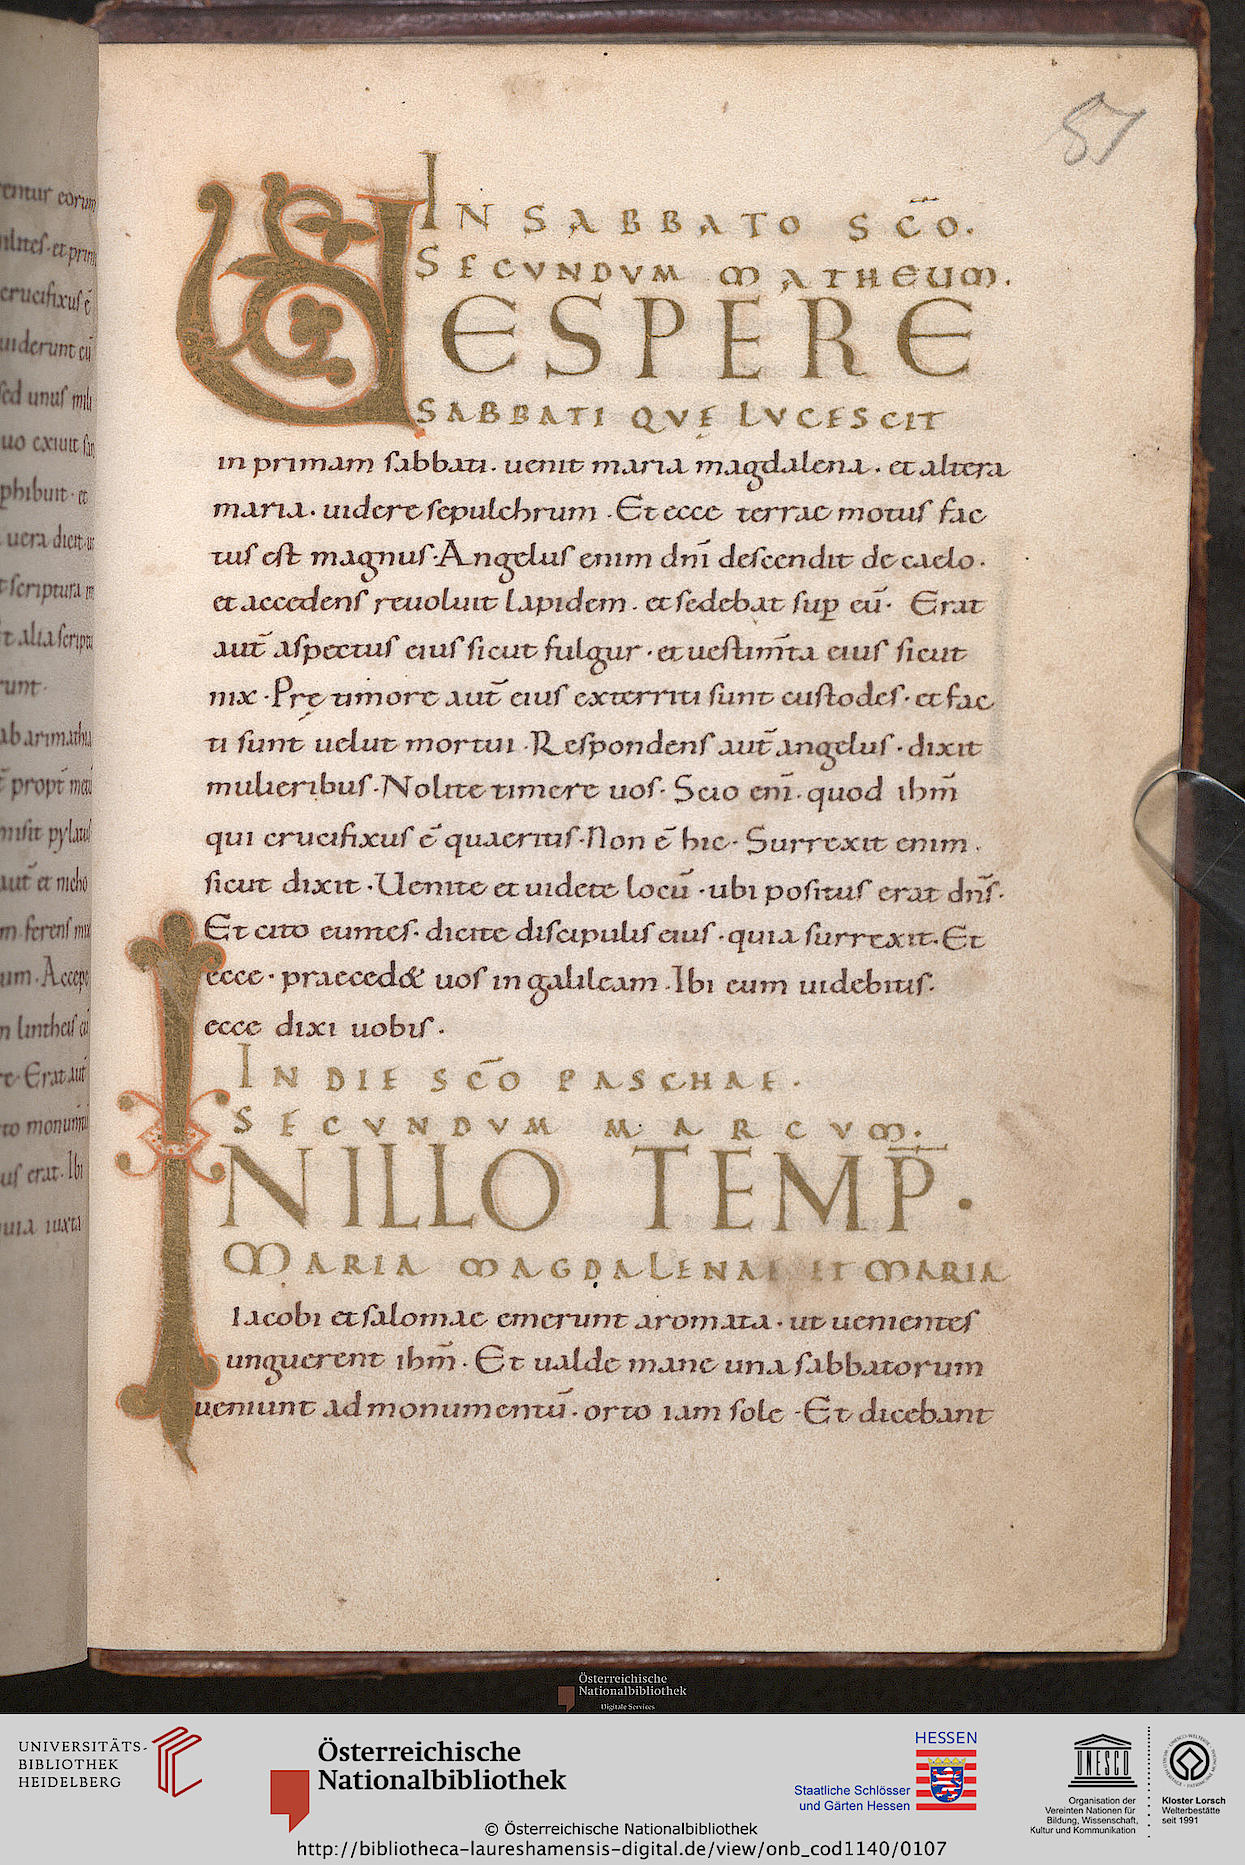 51
IN SABBATO SC̄O.
SECVNDVM MATHEUM.
VESPERE
SABBATI QVĘ LVCESCIT
in primam sabbati. uenit maria magdalena. et altera
maria. uidere sepulchrum. Et ecce terrae motus fac
tus est magnus. Angelus enim dn̄i descendit de caelo.
et accedens reuoluit lapidem. et sedebat suꝑ eū. Erat
aut̄ aspectus eius sicut fulgur. et uestim̄ta eius sicut
nix. Prę timore aut̄ eius exterriti sunt custodes. et fac
ti sunt uelut mortui. Respondens aut̄ angelus. dixit
mulieribus. Nolite timere uos. Scio eni̅. quod ihm̄
qui crucifixus ē quaeritis. Non ē hic. Surrexit enim.
sicut dixit. Uenite et uidete locū. ubi positus erat dn̄s.
Et cito euntes. dicite discipulis eius. quia surrexit. Et
ecce. praeced& uos in galileam. Ibi eum uidebitis.
ecce dixi uobis.
IN DIE SC̄O PASCHAE.
SECVNDVM MARCUM.
IN ILLO TEMP̄.
MARIA MAGDALENAE ET MARIA
Iacobi et salomae emerunt aromata. ut uenientes
unguerent ihm̄. Et ualde mane una sabbatorum
ueniunt ad monumentū. orto iam sole. Et dicebant
Österreichische
Nationalbibliothek
Digitale Services
UNIVERSITÄTS-
BIBLIOTHEK
HEIDELBERG
Österreichische
Nationalbibliothek
HESSEN
Staatliche Schlösser
und Gärten Hessen
UNESCO
Organisation der
Vereinten Nationen für
Bildung, Wissenschaft,
Kultur und Kommunikation
Kloster Lorsch
Welterbestätte
seit 1991
© Österreichische Nationalbibliothek
http://bibliotheca-laureshamensis-digital.de/view/onb_cod1140/0107